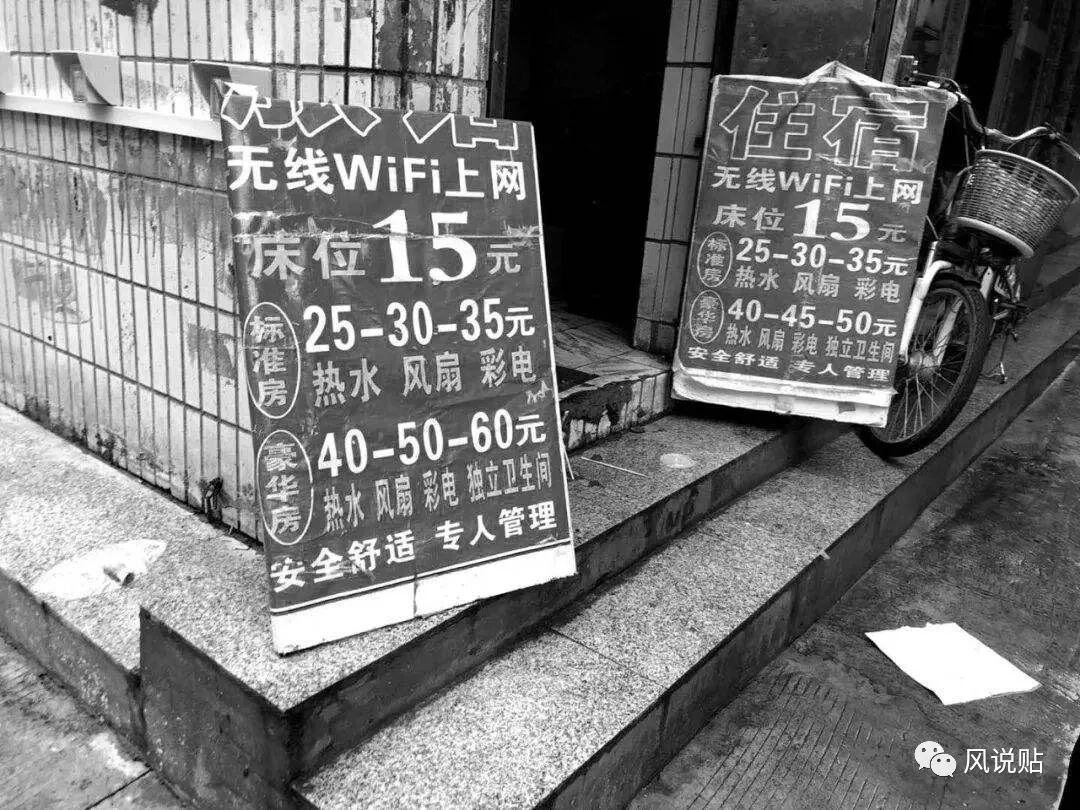 无线WiFi上网
床位15元
标准房
25-30-35元
热水 风扇 彩电
豪华房
40-50-60元
热水 风扇 彩电 独立卫生间
安全舒适 专人管理
住宿
无线WiFi上网
床位15元
标准房
25-30-35元
热水 风扇 彩电
豪华房
40-45-50元
热水 风扇 彩电 独立卫生间
安全舒适 专人管理
风说贴